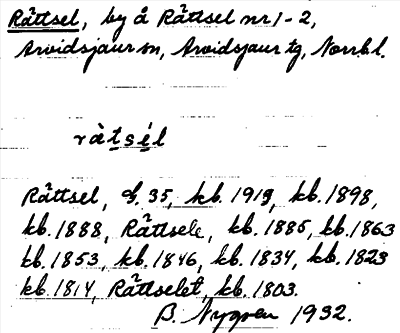 Råttsel, by å Råttsel nr 1-2,
Arvidsjaur sn, Arvidsjaur tg, Norrb.l.
ràtsél
Råttsel, 35, kb. 1919, kb. 1898,
kb. 1888, Råttsele, kb. 1885, kb. 1863
kb. 1853, kb. 1846, kb. 1834, kb. 1823
kb. 1814, Råttselet, kb. 1803.
B. Nygren 1932.